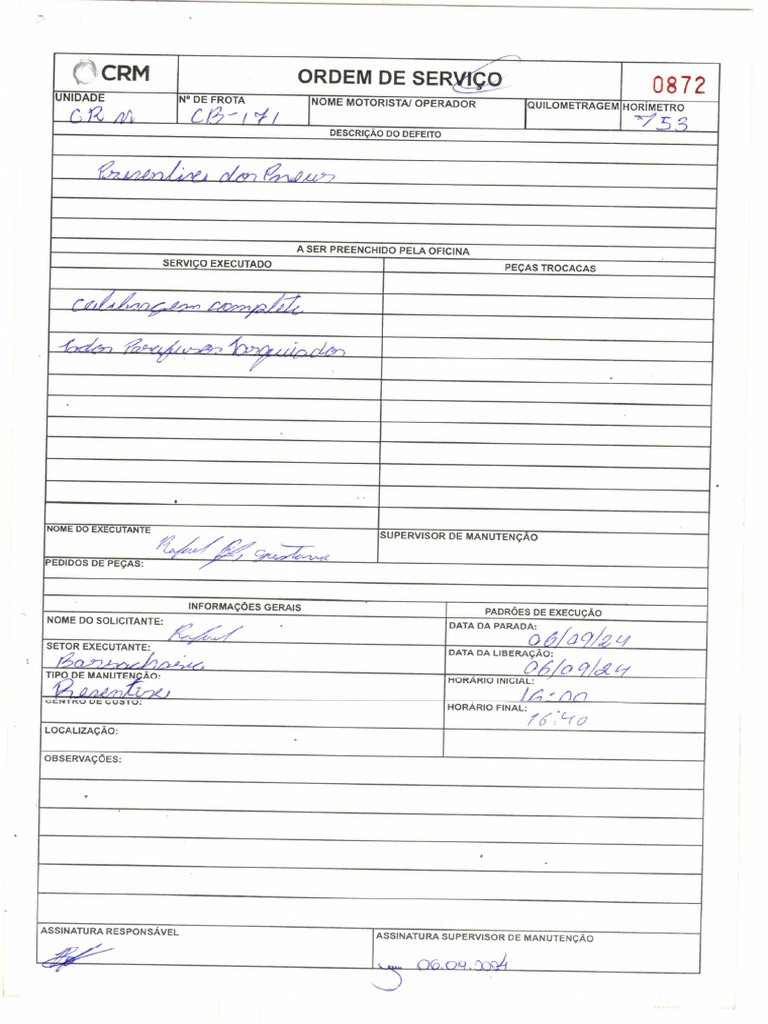 CRM
ORDEM DE SERVIÇO
0872
UNIDADE
CRM
Nº DE FROTA
CB-171
NOME MOTORISTA/ OPERADOR
QUILOMETRAGEM
HORÍMETRO
753
DESCRIÇÃO DO DEFEITO
Presentive dos Pneus
A SER PREENCHIDO PELA OFICINA
SERVIÇO EXECUTADO
PEÇAS TROCACAS
calibragem completa
todos Parafusos torquiados
NOME DO EXECUTANTE
Rafael Gustavo
SUPERVISOR DE MANUTENÇÃO
PEDIDOS DE PEÇAS:
INFORMAÇÕES GERAIS
PADRÕES DE EXECUÇÃO
NOME DO SOLICITANTE:
Rafael
DATA DA PARADA:
06/09/24
SETOR EXECUTANTE:
Borracharia
DATA DA LIBERAÇÃO:
06/09/24
TIPO DE MANUTENÇÃO:
Presentive
HORÁRIO INICIAL:
16:00
CENTRO DE CUSTO:
HORÁRIO FINAL:
16:40
LOCALIZAÇÃO:
OBSERVAÇÕES:
ASSINATURA RESPONSÁVEL
ASSINATURA SUPERVISOR DE MANUTENÇÃO
06.09.2024